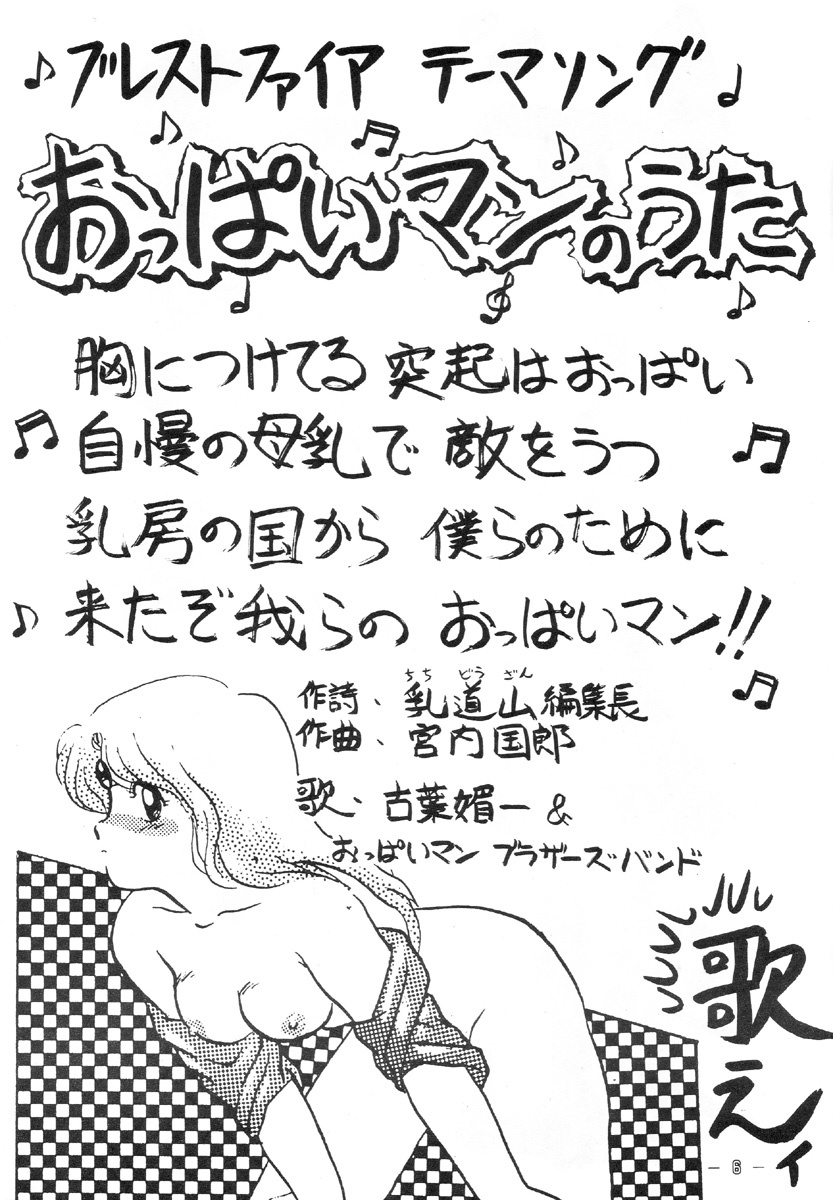 ♪ブレストファイア テーマソング♩
おっぱいマンのうた
胸につけてる 突起はおっぱい
自慢の母乳で 敵をうつ
乳房の国から 僕らのために
来たぞ我らの おっぱいマン!!
ちち どう ざん
作詩、乳道山編集長
作曲、宮内国郎
歌、古葉媚一 &
おっぱいマン ブラザーズ・バンド
歌えィ
6